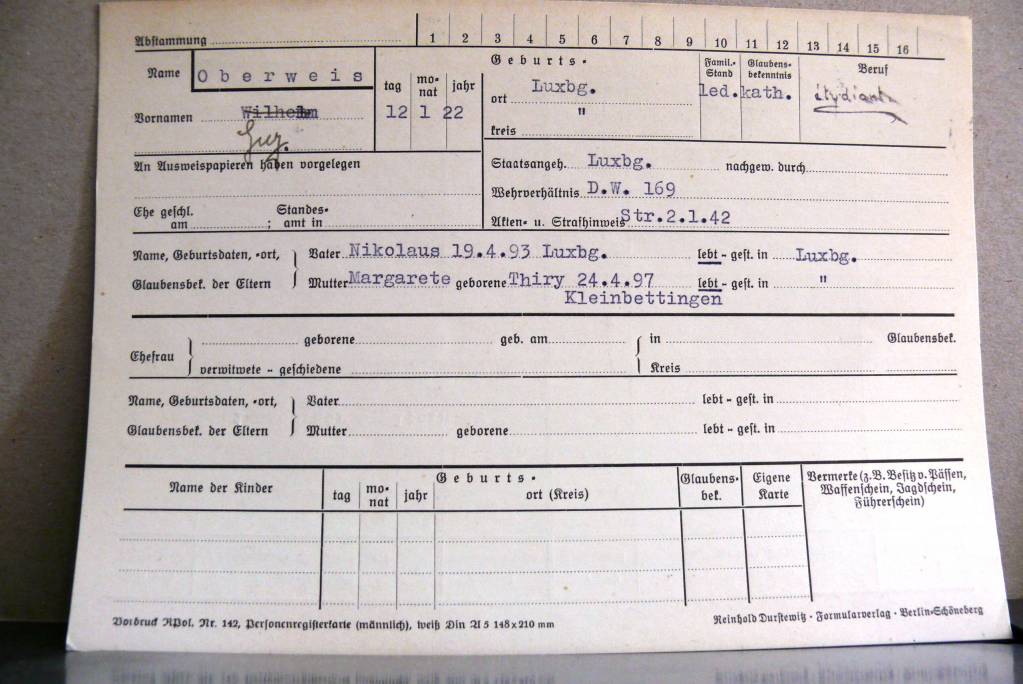 Abstammung 1 2 3 4 5 6 7 8 9 10 11 12 13 14 15 16
Name Oberweis
Vornamen Wilhelm
Guy.
tag monat jahr
12 1 22
Geburts-
ort Luxbg.
kreis "
Famil.-Stand
led.
Glaubensbekenntnis
kath.
Beruf
An Ausweispapieren haben vorgelegen
Ehe geschl. am ; Standesamt in
Staatsangeh. Luxbg. nachgew. durch
Wehrverhältnis D.W. 169
Akten- u. Strafhinweis Str.2.1.42
Name, Geburtsdaten, -ort, Vater Nikolaus 19.4.93 Luxbg. lebt - gest. in Luxbg.
Glaubensbek. der Eltern Mutter Margarete geborene Thiry 24.4.97 lebt - gest. in "
Kleinbettingen
Ehefrau geborene geb. am in Glaubensbek.
verwitwete - geschiedene Kreis
Name, Geburtsdaten, -ort, Vater lebt - gest. in
Glaubensbek. der Eltern Mutter geborene lebt - gest. in
Name der Kinder
Geburts-
tag monat jahr ort (Kreis)
Glaubensbek.
Eigene Karte
Vermerke (z.B. Besitz v. Pässen,
Waffenschein, Jagdschein,
Führerschein)
Vordruck RPol. Nr. 142, Personenregisterkarte (männlich), weiß Din A 5 148 x 210 mm
Reinhold Durstewitz · Formularverlag · Berlin-Schöneberg